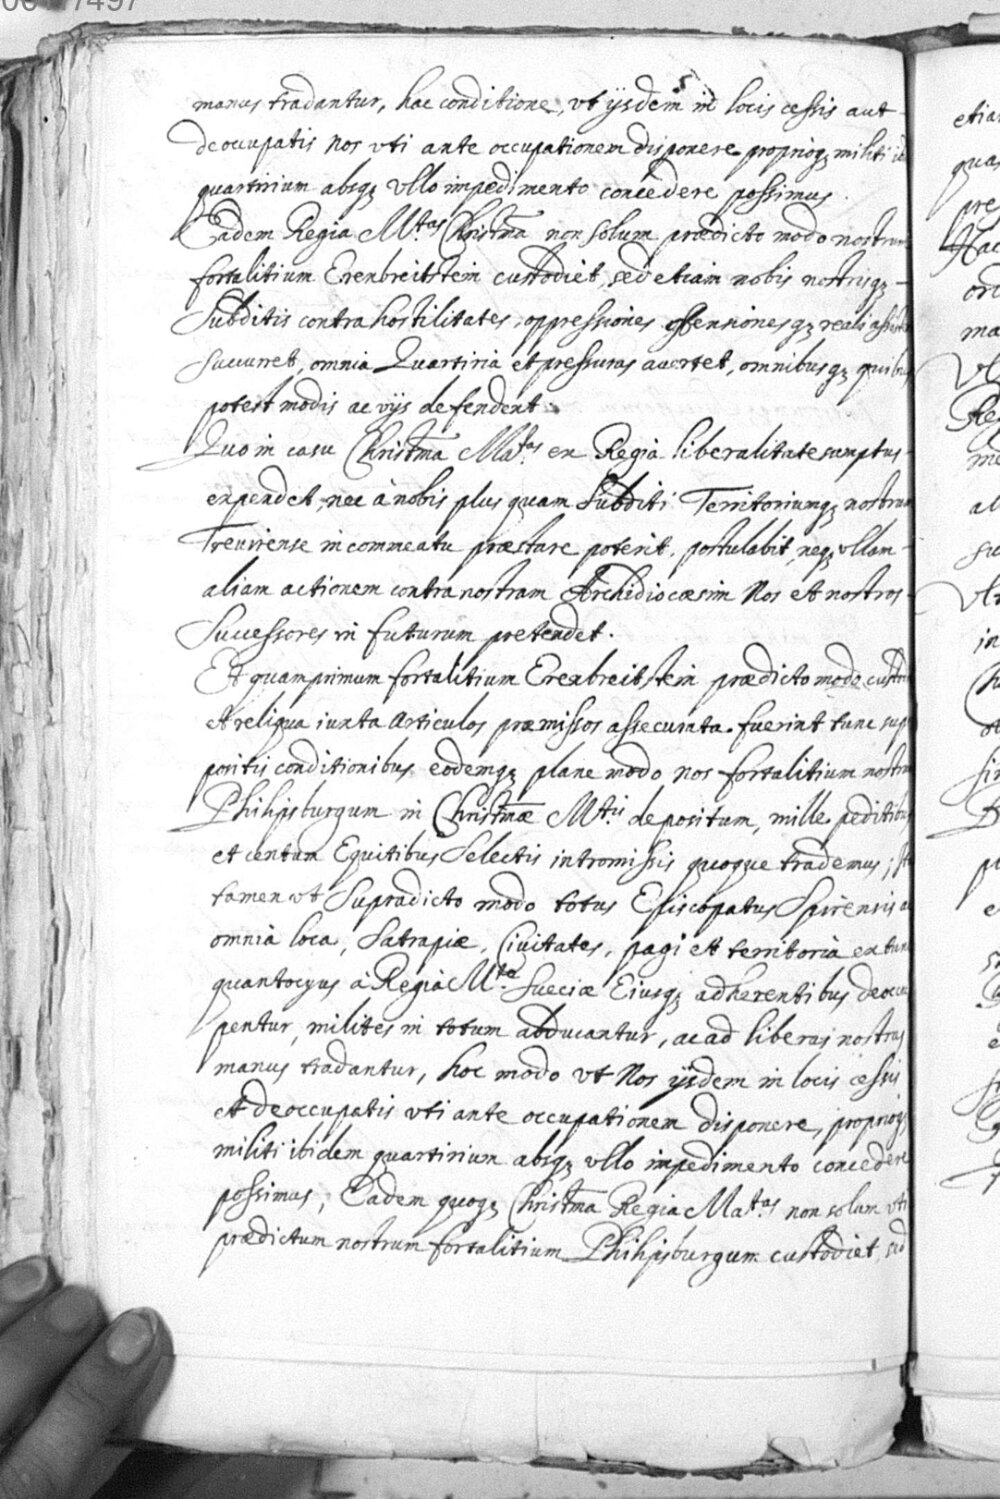 manus tradantur, hac conditione, vt ijsdem in locis cessis aut
deoccupatis nos vti ante occupationem disponere proprioq; militi
quartirium absq; vllo impedimento concedere possimus.
Eadem Regia M.tas Christma non solum prædicto modo nostrum
fortalitium Erenbreitstein custodiet, sed etiam nobis nostrisq; -
Subditis contra hostilitates, oppressiones offensionesq; reali
succurret, omnia Quartiria et pressuras avertet, omnibusq; quibus
potest modis ac vijs defendent.
Quo in casu Christma Ma.tas ex Regia liberalitate sumptus
expendet, nec à nobis plus quam Subditi Territoriumq; nostrum
Trevirense in commeatu præstare poterit, postulabit, neq; vllam -
aliam actionem contra nostram Archidiocæsim Nos et nostros
Successores in futurum pretendet.
Et quamprimum fortalitium Erenbreitstein prædicto modo
et reliqua iuxta articulos præmissos assecurata fuerint tunc
positis conditionibus eodemq; plane modo nos fortalitium nostrum
Philipsburgum in Christmæ M.tis depositum, mille peditibus
et centum Equitibus Selectis intromissis quoque trademus;
tamen vt Supradicto modo totus Episcopatus Spirensis
omnia loca, Satrapiæ, Civitates, pagi et territoria ex tunc
quantocyus à Regia M.te Sueciæ Eiusq; adherentibus deoccu
pentur, milites in totum abducantur, ac ad liberas nostras
manus tradantur, hoc modo vt Nos ijsdem in locis cessis
et deoccupatis vti ante occupationem disponere, proprioq;
militi ibidem quartirium absq; vllo impedimento concedere
possimus, Eadem quoq; Christma Regia Ma.tas non solum vti
prædictum nostrum fortalitium Philipsburgum custodiet, sed